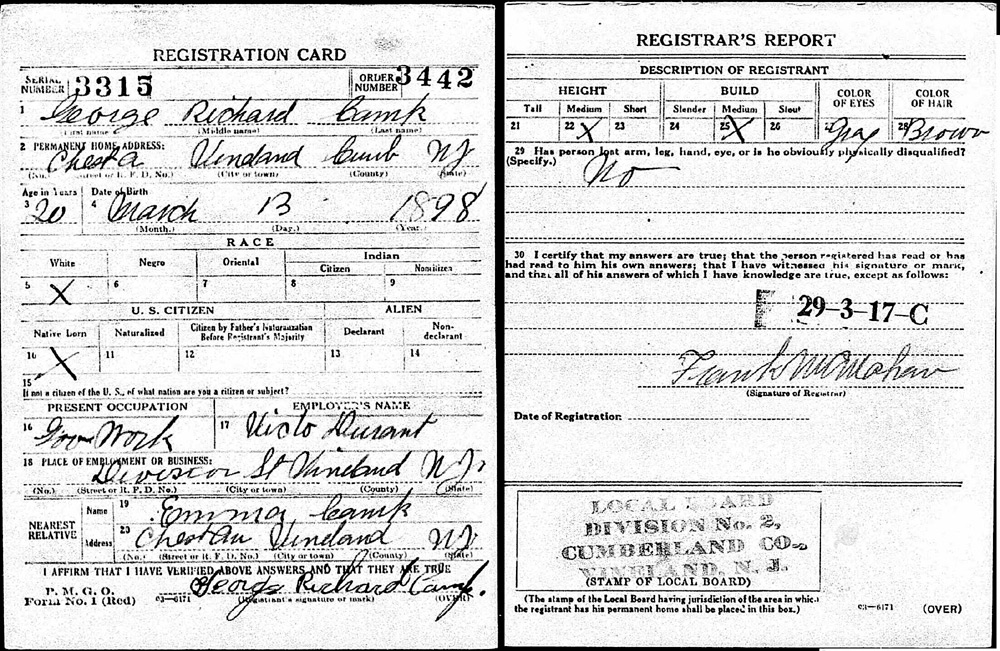 REGISTRATION CARD
SERIAL NUMBER 3315 ORDER NUMBER 3442
1 George Richard Camk
(First name) (Middle name) (Last name)
2 PERMANENT HOME ADDRESS:
Vineland Cumb NJ
(No.) (Street or R. F. D. No.) (City or town) (County) (State)
Age in Years Date of Birth
3 20 4 March 13 1898
(Month.) (Day.) (Year.)
RACE
White Negro Oriental Indian
Citizen Noncitizen
5 X 6 7 8 9
U. S. CITIZEN ALIEN
Native Born Naturalized Citizen by Father's Naturalization Before Registrant's Majority Declarant Non-declarant
10 X 11 12 13 14
15
If not a citizen of the U. S., of what nation are you a citizen or subject?
PRESENT OCCUPATION EMPLOYER'S NAME
16 Work 17 Victo Durant
18 PLACE OF EMPLOYMENT OR BUSINESS:
Division St Vineland NJ
(No.) (Street or R. F. D. No.) (City or town) (County) (State)
NEAREST RELATIVE
Name 19 Emma Camk
Address 20 Chest Au Vineland NJ
(No.) (Street or R. F. D. No.) (City or town) (County) (State)
I AFFIRM THAT I HAVE VERIFIED ABOVE ANSWERS AND THAT THEY ARE TRUE
P. M. G. O.
Form No. 1 (Red) 03—6171 George Richard Camp.
(Registrant's signature or mark) (OVER)
REGISTRAR'S REPORT
DESCRIPTION OF REGISTRANT
HEIGHT BUILD COLOR OF EYES COLOR OF HAIR
Tall Medium Short Slender Medium Stout
21 22 X 23 24 25 X 26 27 Gray 28 Brown
29 Has person lost arm, leg, hand, eye, or is he obviously physically disqualified?
(Specify.) No
30 I certify that my answers are true; that the person registered has read or has
had read to him his own answers; that I have witnessed his signature or mark,
and that all of his answers of which I have knowledge are true, except as follows:
29-3-17-C
Frank McMahan
(Signature of Registrar)
Date of Registration
LOCAL BOARD
DIVISION No. 2,
CUMBERLAND CO.,
VINELAND, N. J.
(STAMP OF LOCAL BOARD)
(The stamp of the Local Board having jurisdiction of the area in which
the registrant has his permanent home shall be placed in this box.)
03—6171 (OVER)